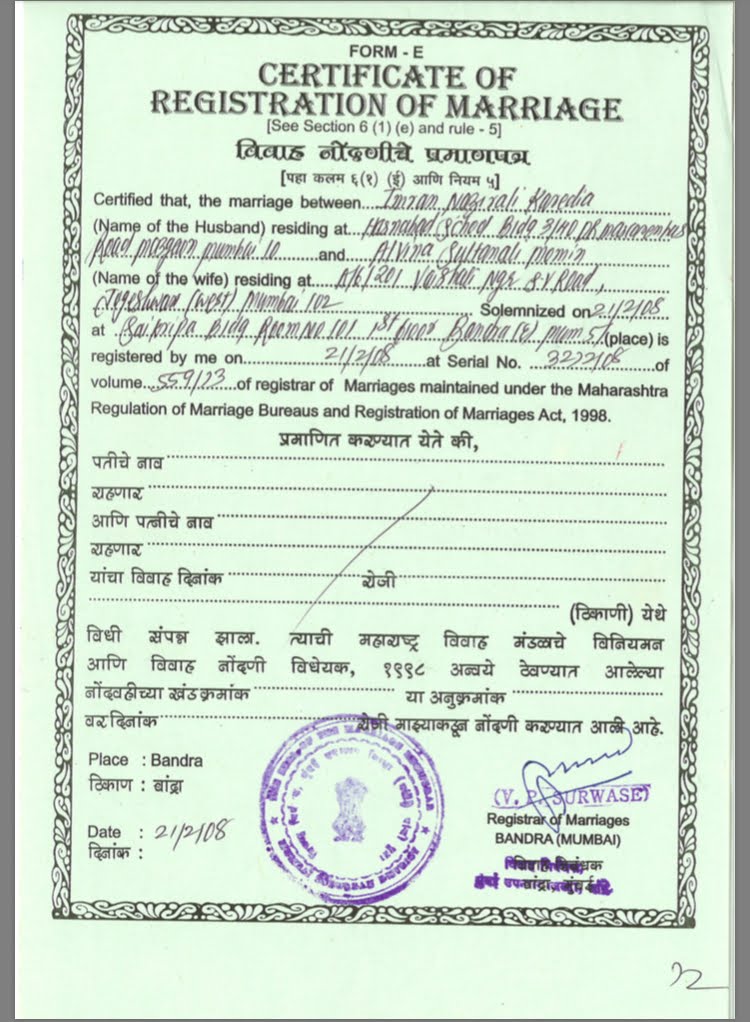 FORM - E
CERTIFICATE OF
REGISTRATION OF MARRIAGE
[See Section 6 (1) (e) and rule - 5]
विवाह नोंदणीचे प्रमाणपत्र
[पहा कलम ६(१) (ई) आणि नियम ५]
Certified that, the marriage between Imran Nazirali Karedia
(Name of the Husband) residing at Hasnabad School Bldg 3/40 DR
Road mazgaon mumbai 10 and Alvina Sultanali Momin
(Name of the wife) residing at A/6/201 Vaishali Ngr S.V Road,
Jogeshwari (west) mumbai 102 Solemnized on 21/2/08
at Saikripa Bldg Room No 101 1st floor Bandra (E) mum 51 (place) is
registered by me on 21/2/08 at Serial No. 3222/08 of
volume 559/23 of registrar of Marriages maintained under the Maharashtra
Regulation of Marriage Bureaus and Registration of Marriages Act, 1998.
प्रमाणित करण्यात येते की,
पतीचे नाव
राहणार
आणि पत्नीचे नाव
राहणार
यांचा विवाह दिनांक रोजी
(ठिकाणी) येथे
विधी संपन्न झाला. त्याची महाराष्ट्र विवाह मंडळाचे विनियमन
आणि विवाह नोंदणी विधेयक, १९९८ अन्वये ठेवण्यात आलेल्या
नोंदवहीच्या खंड क्रमांक या अनुक्रमांक
वर दिनांक रोजी माझ्याकडून नोंदणी करण्यात आली आहे.
Place : Bandra
ठिकाण : बांद्रा
(V. P. SURWASE)
Registrar of Marriages
BANDRA (MUMBAI)
Date : 21/2/08
दिनांक :